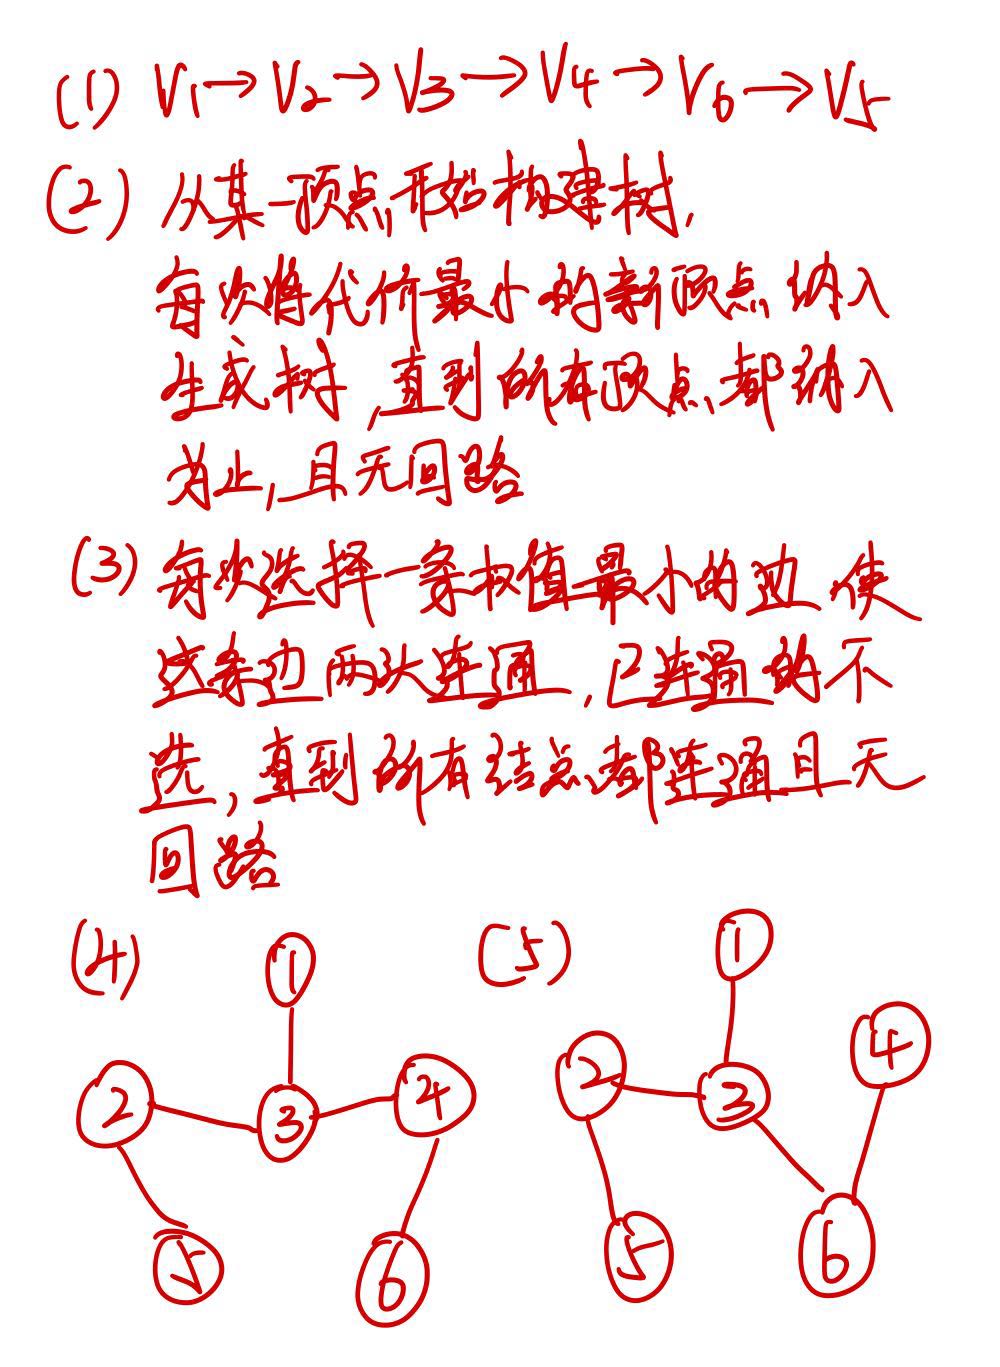 (1) V1→V2→V3→V4→V6→V5
(2) 从某一顶点开始构建树,
每次将代价最小的新顶点纳入
生成树,直到所有顶点都纳入
为止,且无回路
(3) 每次选择一条权值最小的边,使
这条边两头连通,已连通的不
选,直到所有结点都连通且无
回路
(4) (5)
1 1
2 3 4 2 3 4
5 6 5 6